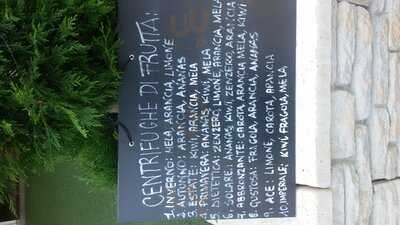 CENTRIFUGHE DI FRUTTA:
1. INVERNO: MELA ARANCIA LIMONE
2. AUTUNNO: ARANCIA, ANANAS
3. ESTATE: KIWI, ARANCIA, MELA
4. PRIMAVERA: ANANAS KIWI, MELA
5. DIETETICA: ZENZERO, LIMONE, ARANCIA, MELA
6. SOLARE: ANANAS KIWI, ZENZERO, ARANCIA
7. ABBRONZANTE: CAROTA, ARANCIA MELA, KIWI
8. GUSTOSA: FRAGOLA, ARANCIA, ANANAS
9. ACE: LIMONE, CAROTA, ARANCIA
10 IMPERIALE, KIWI FRAGOLA, MELA